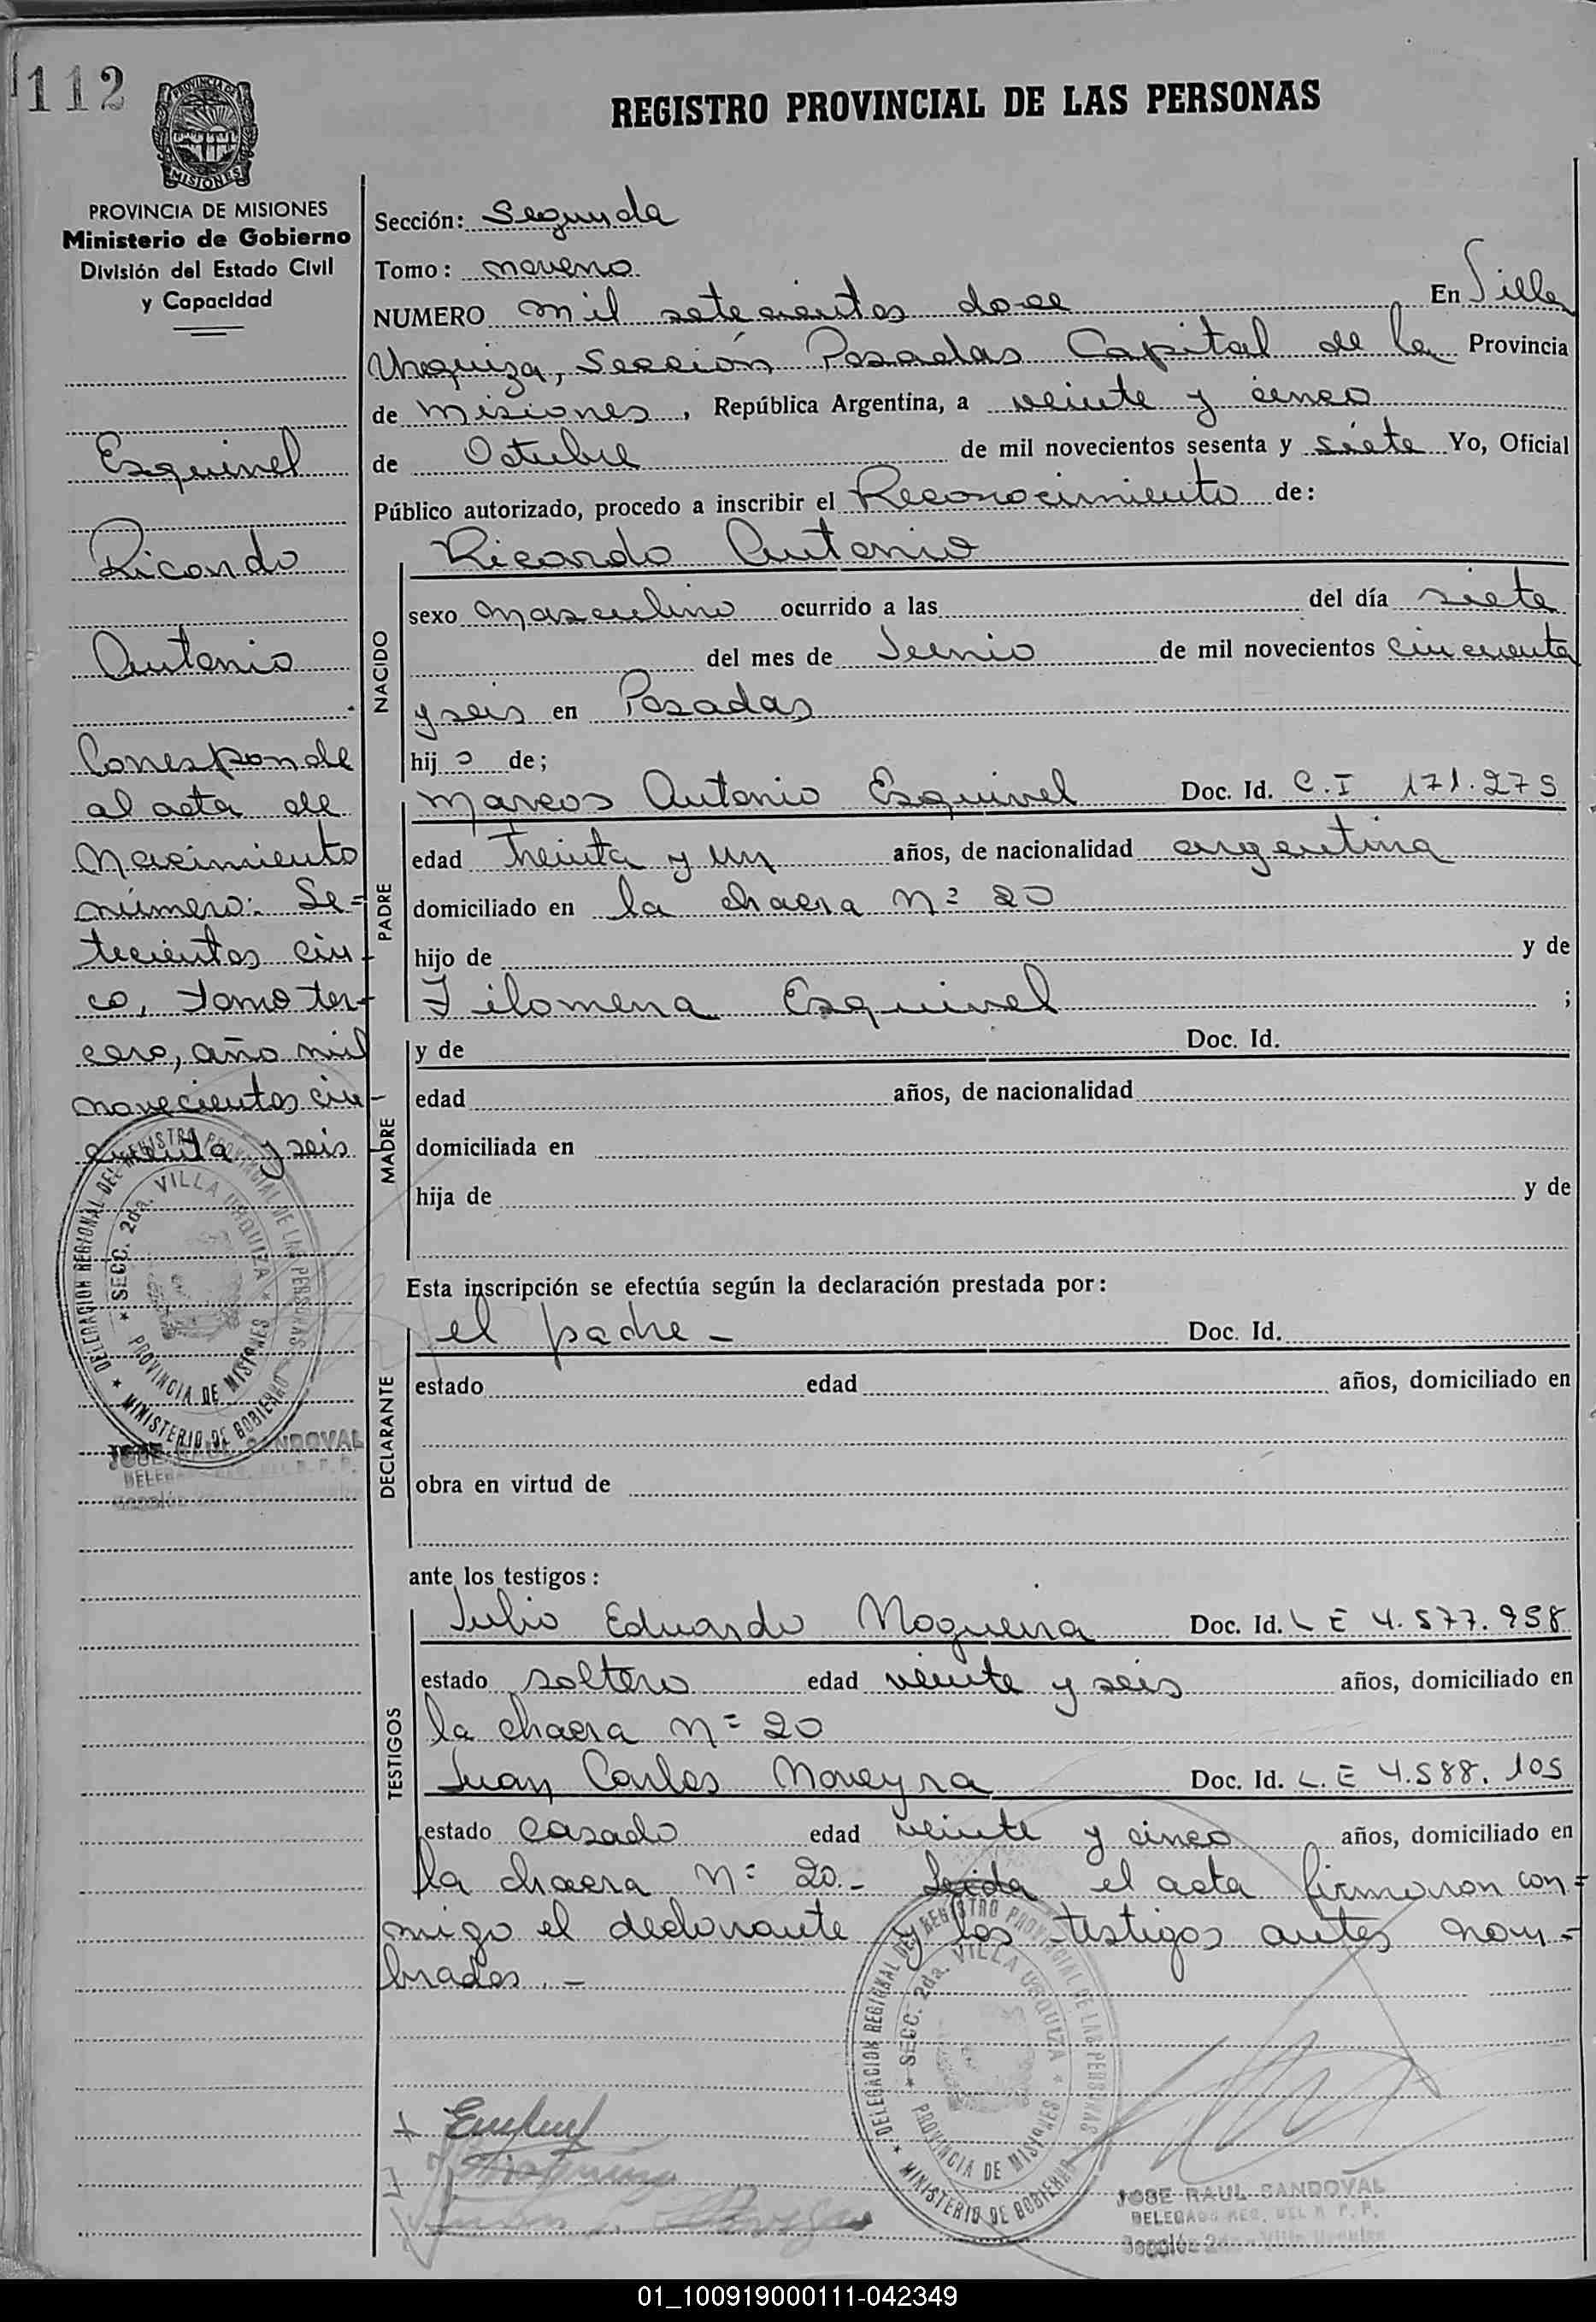 112
PROVINCIA DE
MISIONES
REGISTRO PROVINCIAL DE LAS PERSONAS
PROVINCIA DE MISIONES
Ministerio de Gobierno
División del Estado Civil
y Capacidad
Esquivel
Ricardo
Antonio
Corresponde
al acta de
Nacimiento
número: Se=
tecientos cin-
co, tomo ter-
cero, año mil
novecientos cin-
cuenta y seis
DELEGACION REGIONAL DEL REGISTRO PROVINCIAL DE LAS PERSONAS
* SECC. 2da. VILLA URQUIZA *
PROVINCIA DE MISIONES
* MINISTERIO DE GOBIERNO
JOSE RAUL SANDOVAL
Sección: Segunda
Tomo: noveno
NUMERO mil setecientos doce En Villa
Urquiza, Sección Posadas Capital de la Provincia
de Misiones, República Argentina, a veinte y cinco
de Octubre de mil novecientos sesenta y siete Yo, Oficial
Público autorizado, procedo a inscribir el Reconocimiento de:
NACIDO
Ricardo Antonio
sexo masculino ocurrido a las del día siete
del mes de Junio de mil novecientos cincuenta
y seis en Posadas
hij o de;
PADRE
Marcos Antonio Esquivel Doc. Id. C.I 171.275
edad Treinta y un años, de nacionalidad argentina
domiciliado en la chacra Nº 20
hijo de y de
Filomena Esquivel ;
MADRE
y de Doc. Id.
edad años, de nacionalidad
domiciliada en
hija de y de
Esta inscripción se efectúa según la declaración prestada por:
DECLARANTE
el padre - Doc. Id.
estado edad años, domiciliado en
obra en virtud de
ante los testigos:
TESTIGOS
Julio Eduardo Noguera Doc. Id. L E 4.577.958
estado soltero edad veinte y seis años, domiciliado en
la chacra Nº 20
Juan Carlos Moreyra Doc. Id. L.E 4.588.105
estado casado edad veinte y cinco años, domiciliado en
la chacra Nº 20.- Leida el acta firmaron con=
migo el declarante y los testigos antes nom=
brados.-
DELEGACION REGIONAL DEL REGISTRO PROVINCIAL DE LAS PERSONAS
* SECC. 2da. VILLA URQUIZA *
PROVINCIA DE MISIONES
* MINISTERIO DE GOBIERNO
JOSE RAUL SANDOVAL
DELEGADO REG. DEL R. P. P.
Sección 2da - Villa Urquiza
01_100919000111-042349